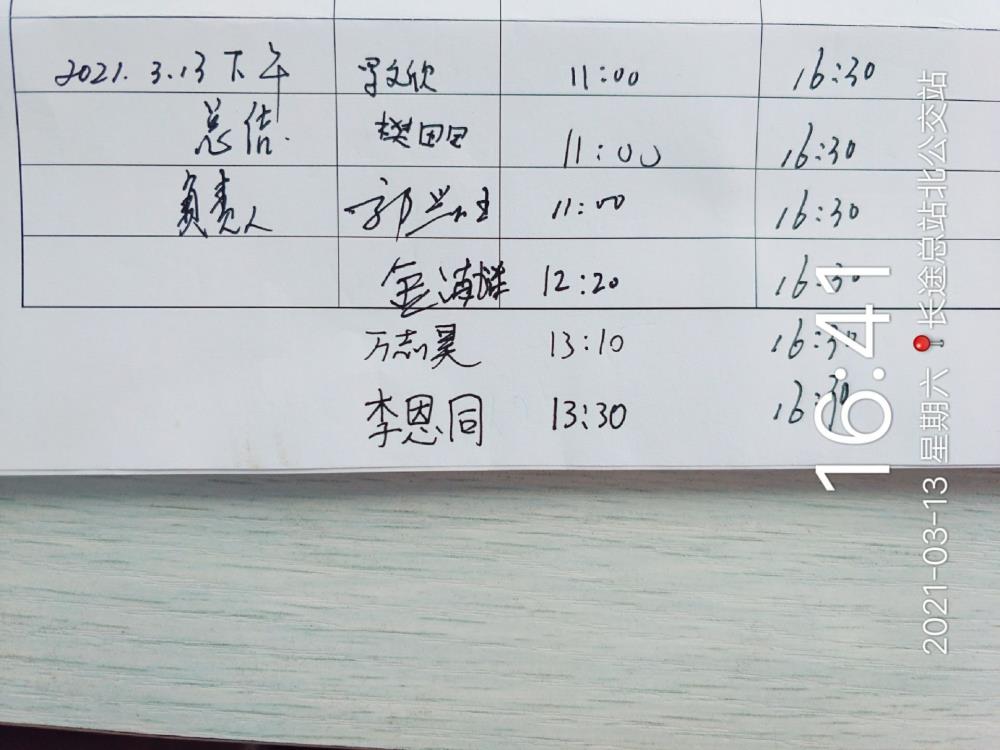 2021.3.13下午 文欣 11:00 16:30
总估. 樊田田 11:00 16:30
负责人 郭 11:00 16:30
金 12:20 16:30
万志昊 13:10 16:30
李恩同 13:30 16:30
16:41
2021-03-13 星期六 长途总站北公交站